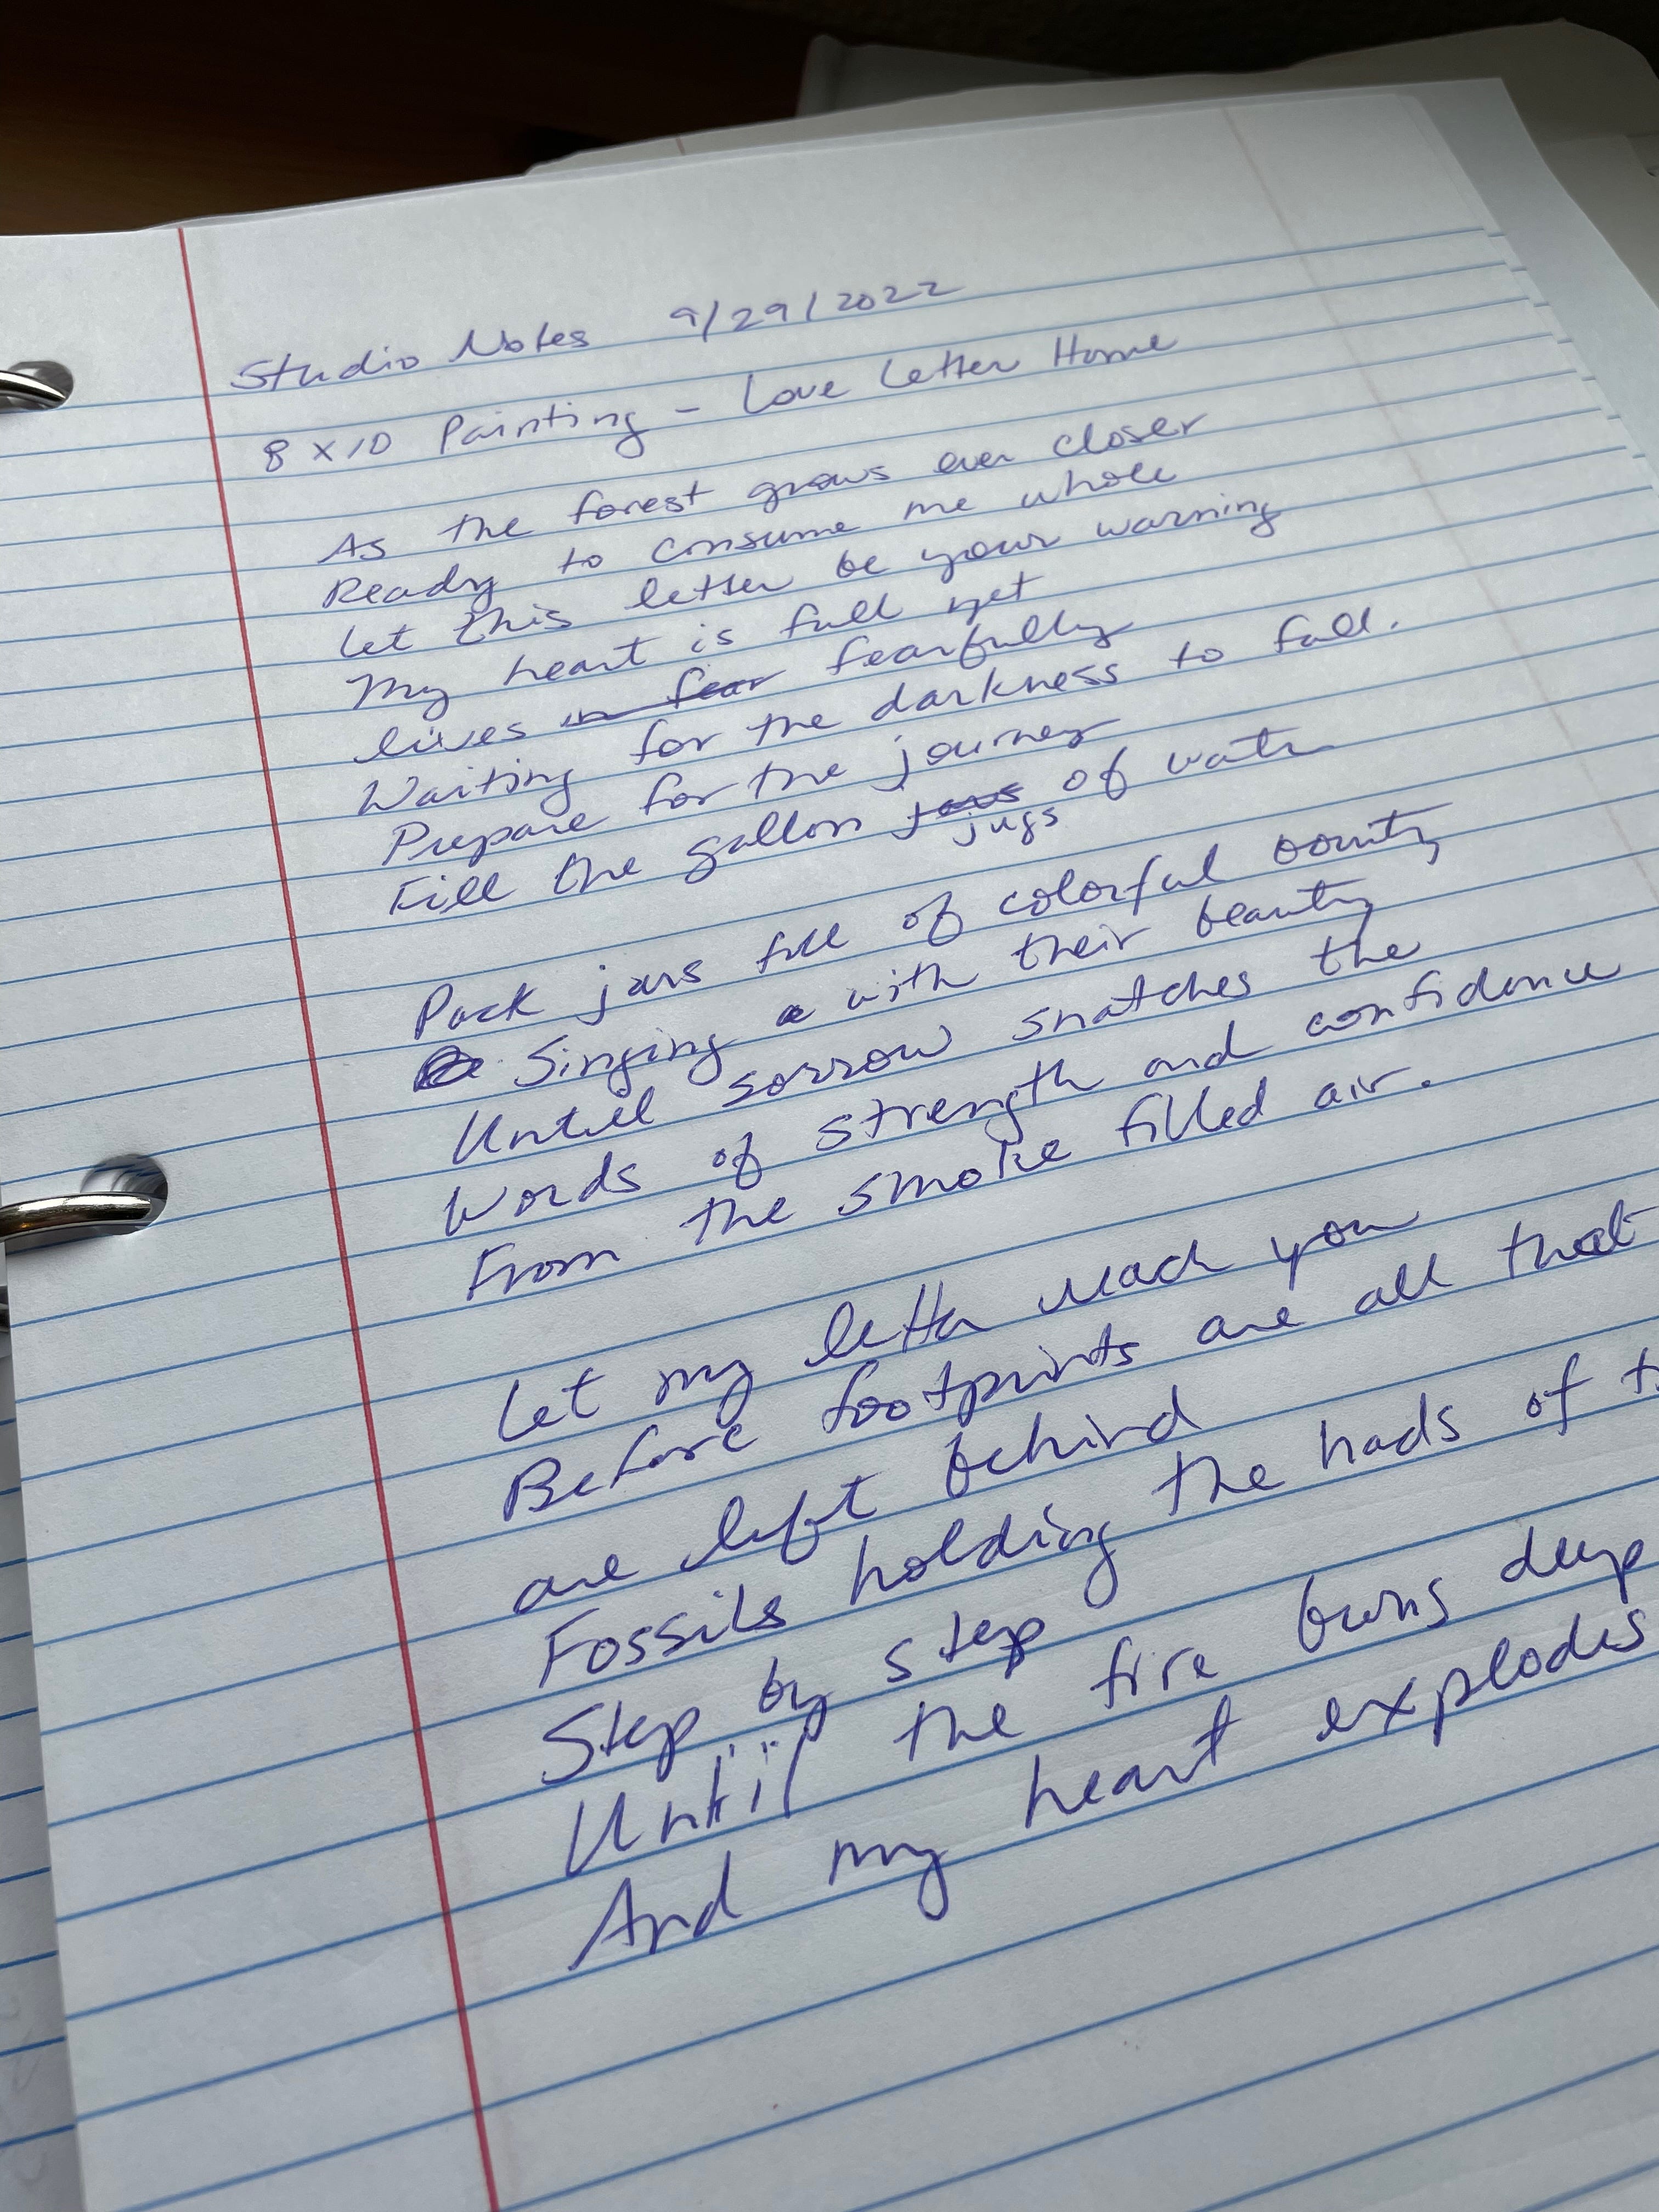 Studio Notes 9/29/2022
8 x 10 Painting - Love Letter Home
As the forest grows ever closer
Ready to consume me whole
Let this letter be your warning
My heart is full yet
lives in fear fearfully
Waiting for the darkness to fall.
Prepare for the journey
Fill the gallon jars of water
jugs
Pack jars full of colorful bounty
Singing with their beauty
Untill sorrow snatches the
Words of strength and confidence
From the smoke filled air.
Let my letter reach you
Before footprints are all that
are left behind
Fossils holding the hads of
Step by step
Until the fire burns deep
And my heart explodes